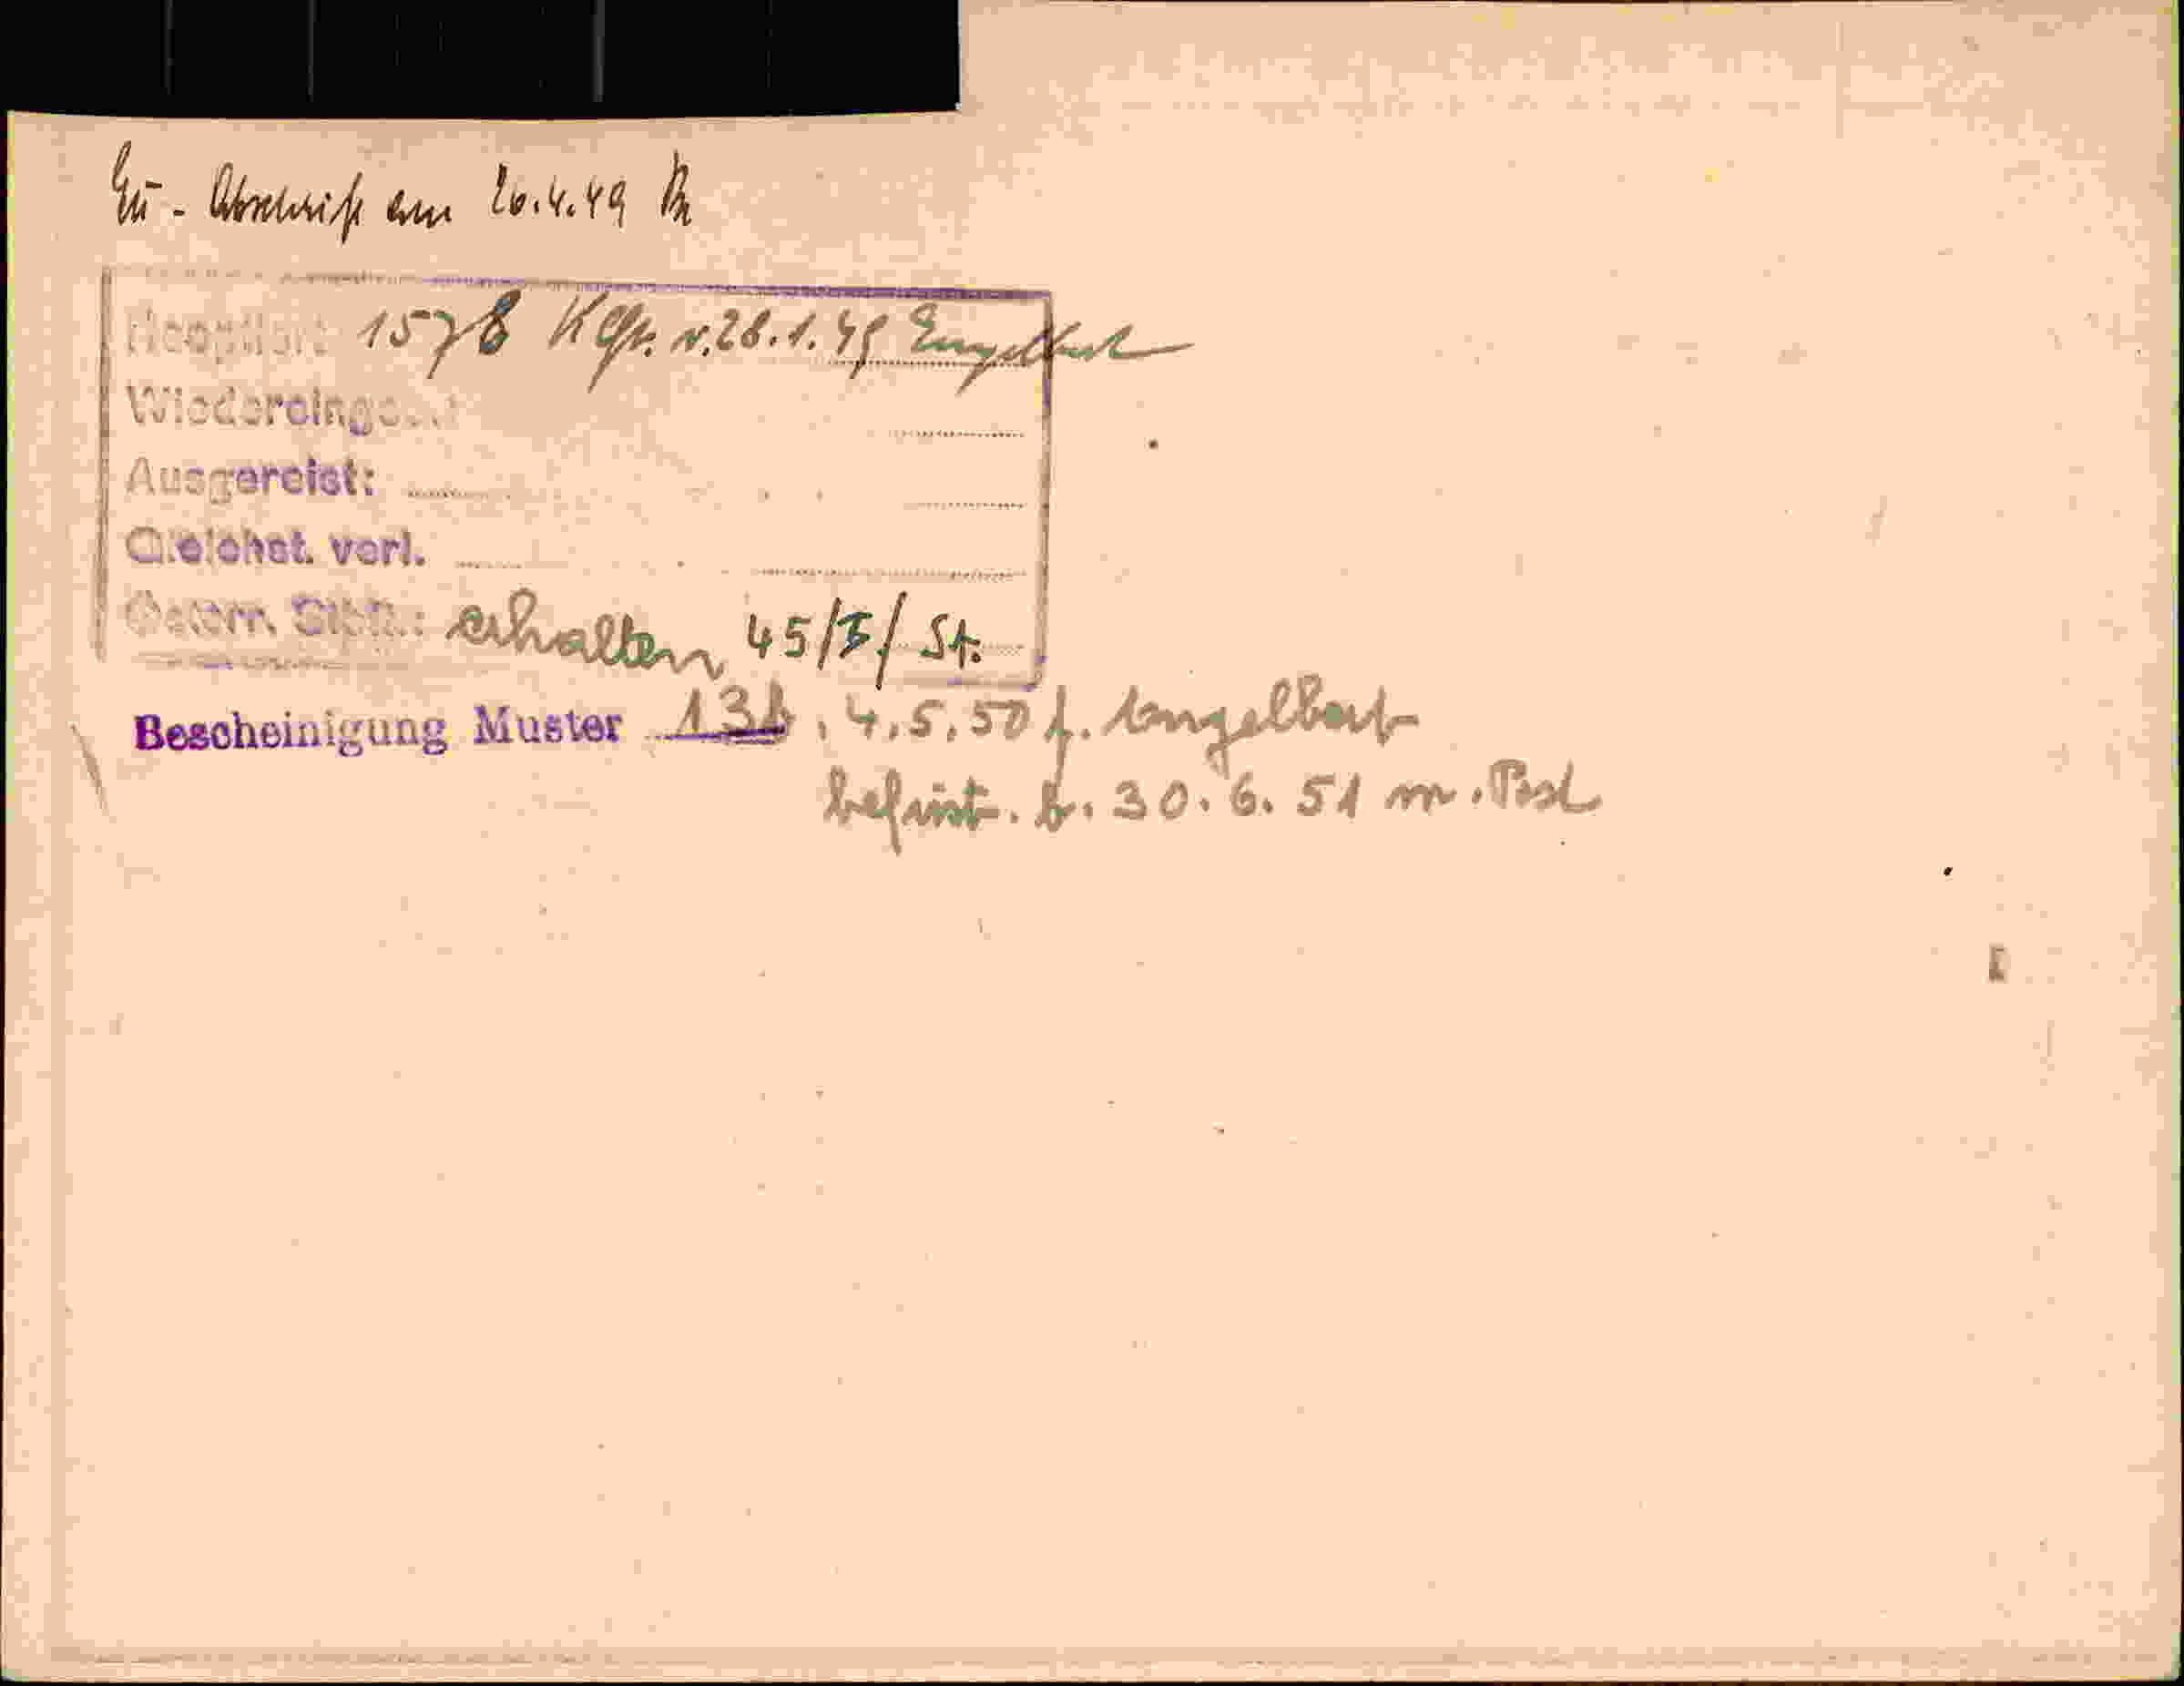 Eü - Abschrift am 20.4.49
Reoptiert 1578 Kgfr. v. 28.1.49 Engelbert
Wiedereinge...:
Ausgereist:
Gleichst. verl.
Österr. Stb.: erhalten 45/I/ St.
Bescheinigung Muster 13b, 4.5.50 f. Engelbert
befrist. b. 30.6.51 m. Post